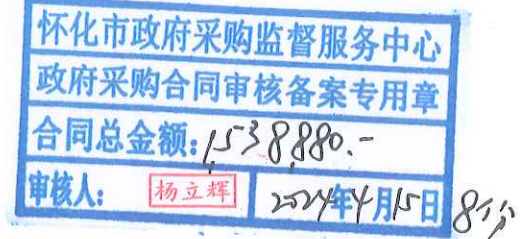 怀化市政府采购监督服务中心
政府采购合同审核备案专用章
合同总金额:1,538,880.-
审核人: 杨立辉 2024年4月15日